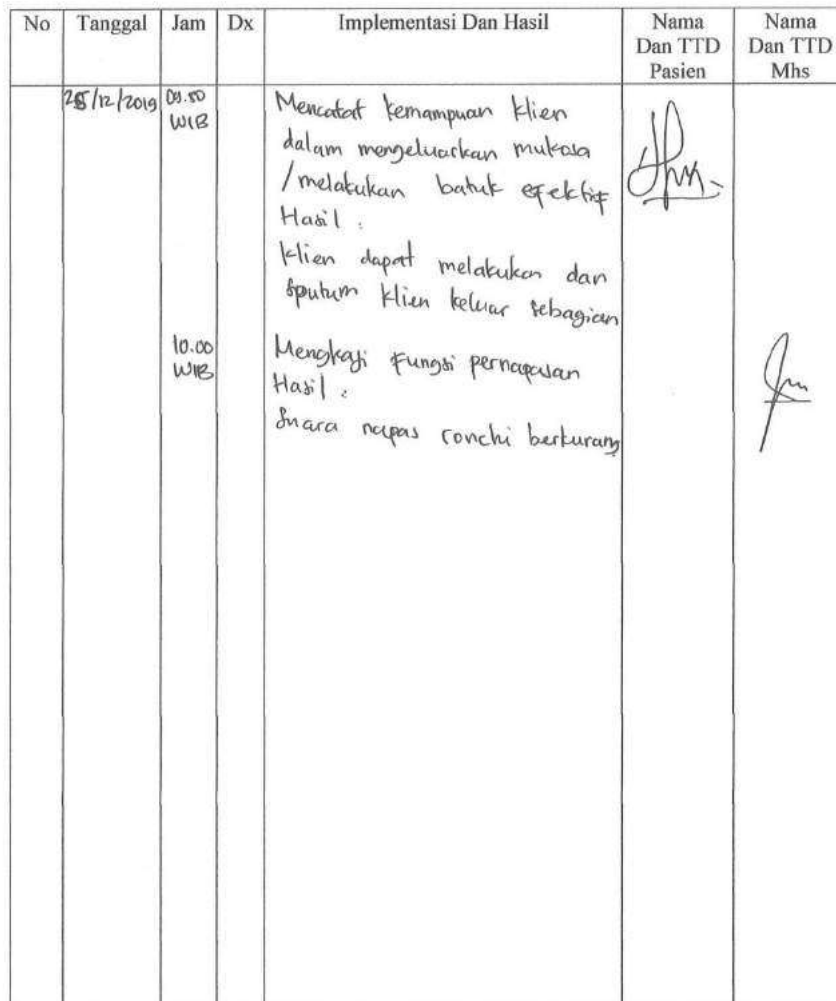 No Tanggal Jam Dx Implementasi Dan Hasil Nama Dan TTD Pasien Nama Dan TTD Mhs
25/12/2019 09.50 WIB
Mencatat kemampuan klien
dalam mengeluarkan mukosa
/melakukan batuk efektif
Hasil :
Klien dapat melakukan dan
sputum klien keluar sebagian
10.00 WIB
Mengkaji fungsi pernapasan
Hasil :
Suara napas ronchi berkurang